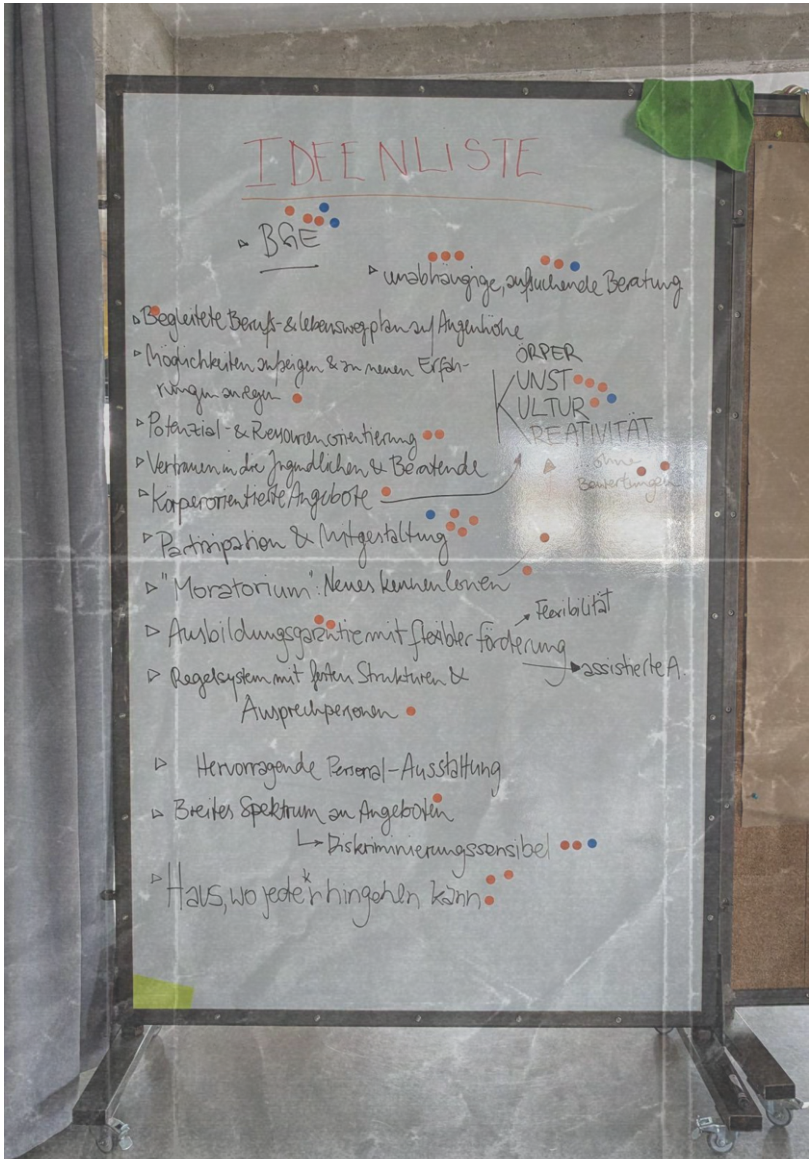 IDEENLISTE
▹ BGE
▹ unabhängige, aufsuchende Beratung
▹ Begleitete Berufs- & Lebenswegplan auf Augenhöhe
▹ Möglichkeiten aufzeigen & zu neuen Erfah-
rungen anregen
▹ Potenzial- & Ressourcenorientierung
▹ Vertrauen in die Jugendlichen & Beratende
▹ Körperorientierte Angebote
KÖRPER
KUNST
KULTUR
KREATIVITÄT
... ohne
Bewertungen
▹ Partizipation & Mitgestaltung
▹ "Moratorium": Neues kennenlernen
▹ Ausbildungsgarantie mit flexibler Förderung
→ Flexibilität
→ assistierte A.
▹ Regelsystem mit festen Strukturen &
Ansprechpersonen
▹ Hervorragende Personal-Ausstattung
▹ Breites Spektrum an Angeboten
↳ Diskriminierungssensibel
▹ Haus, wo jede*r hingehen kann